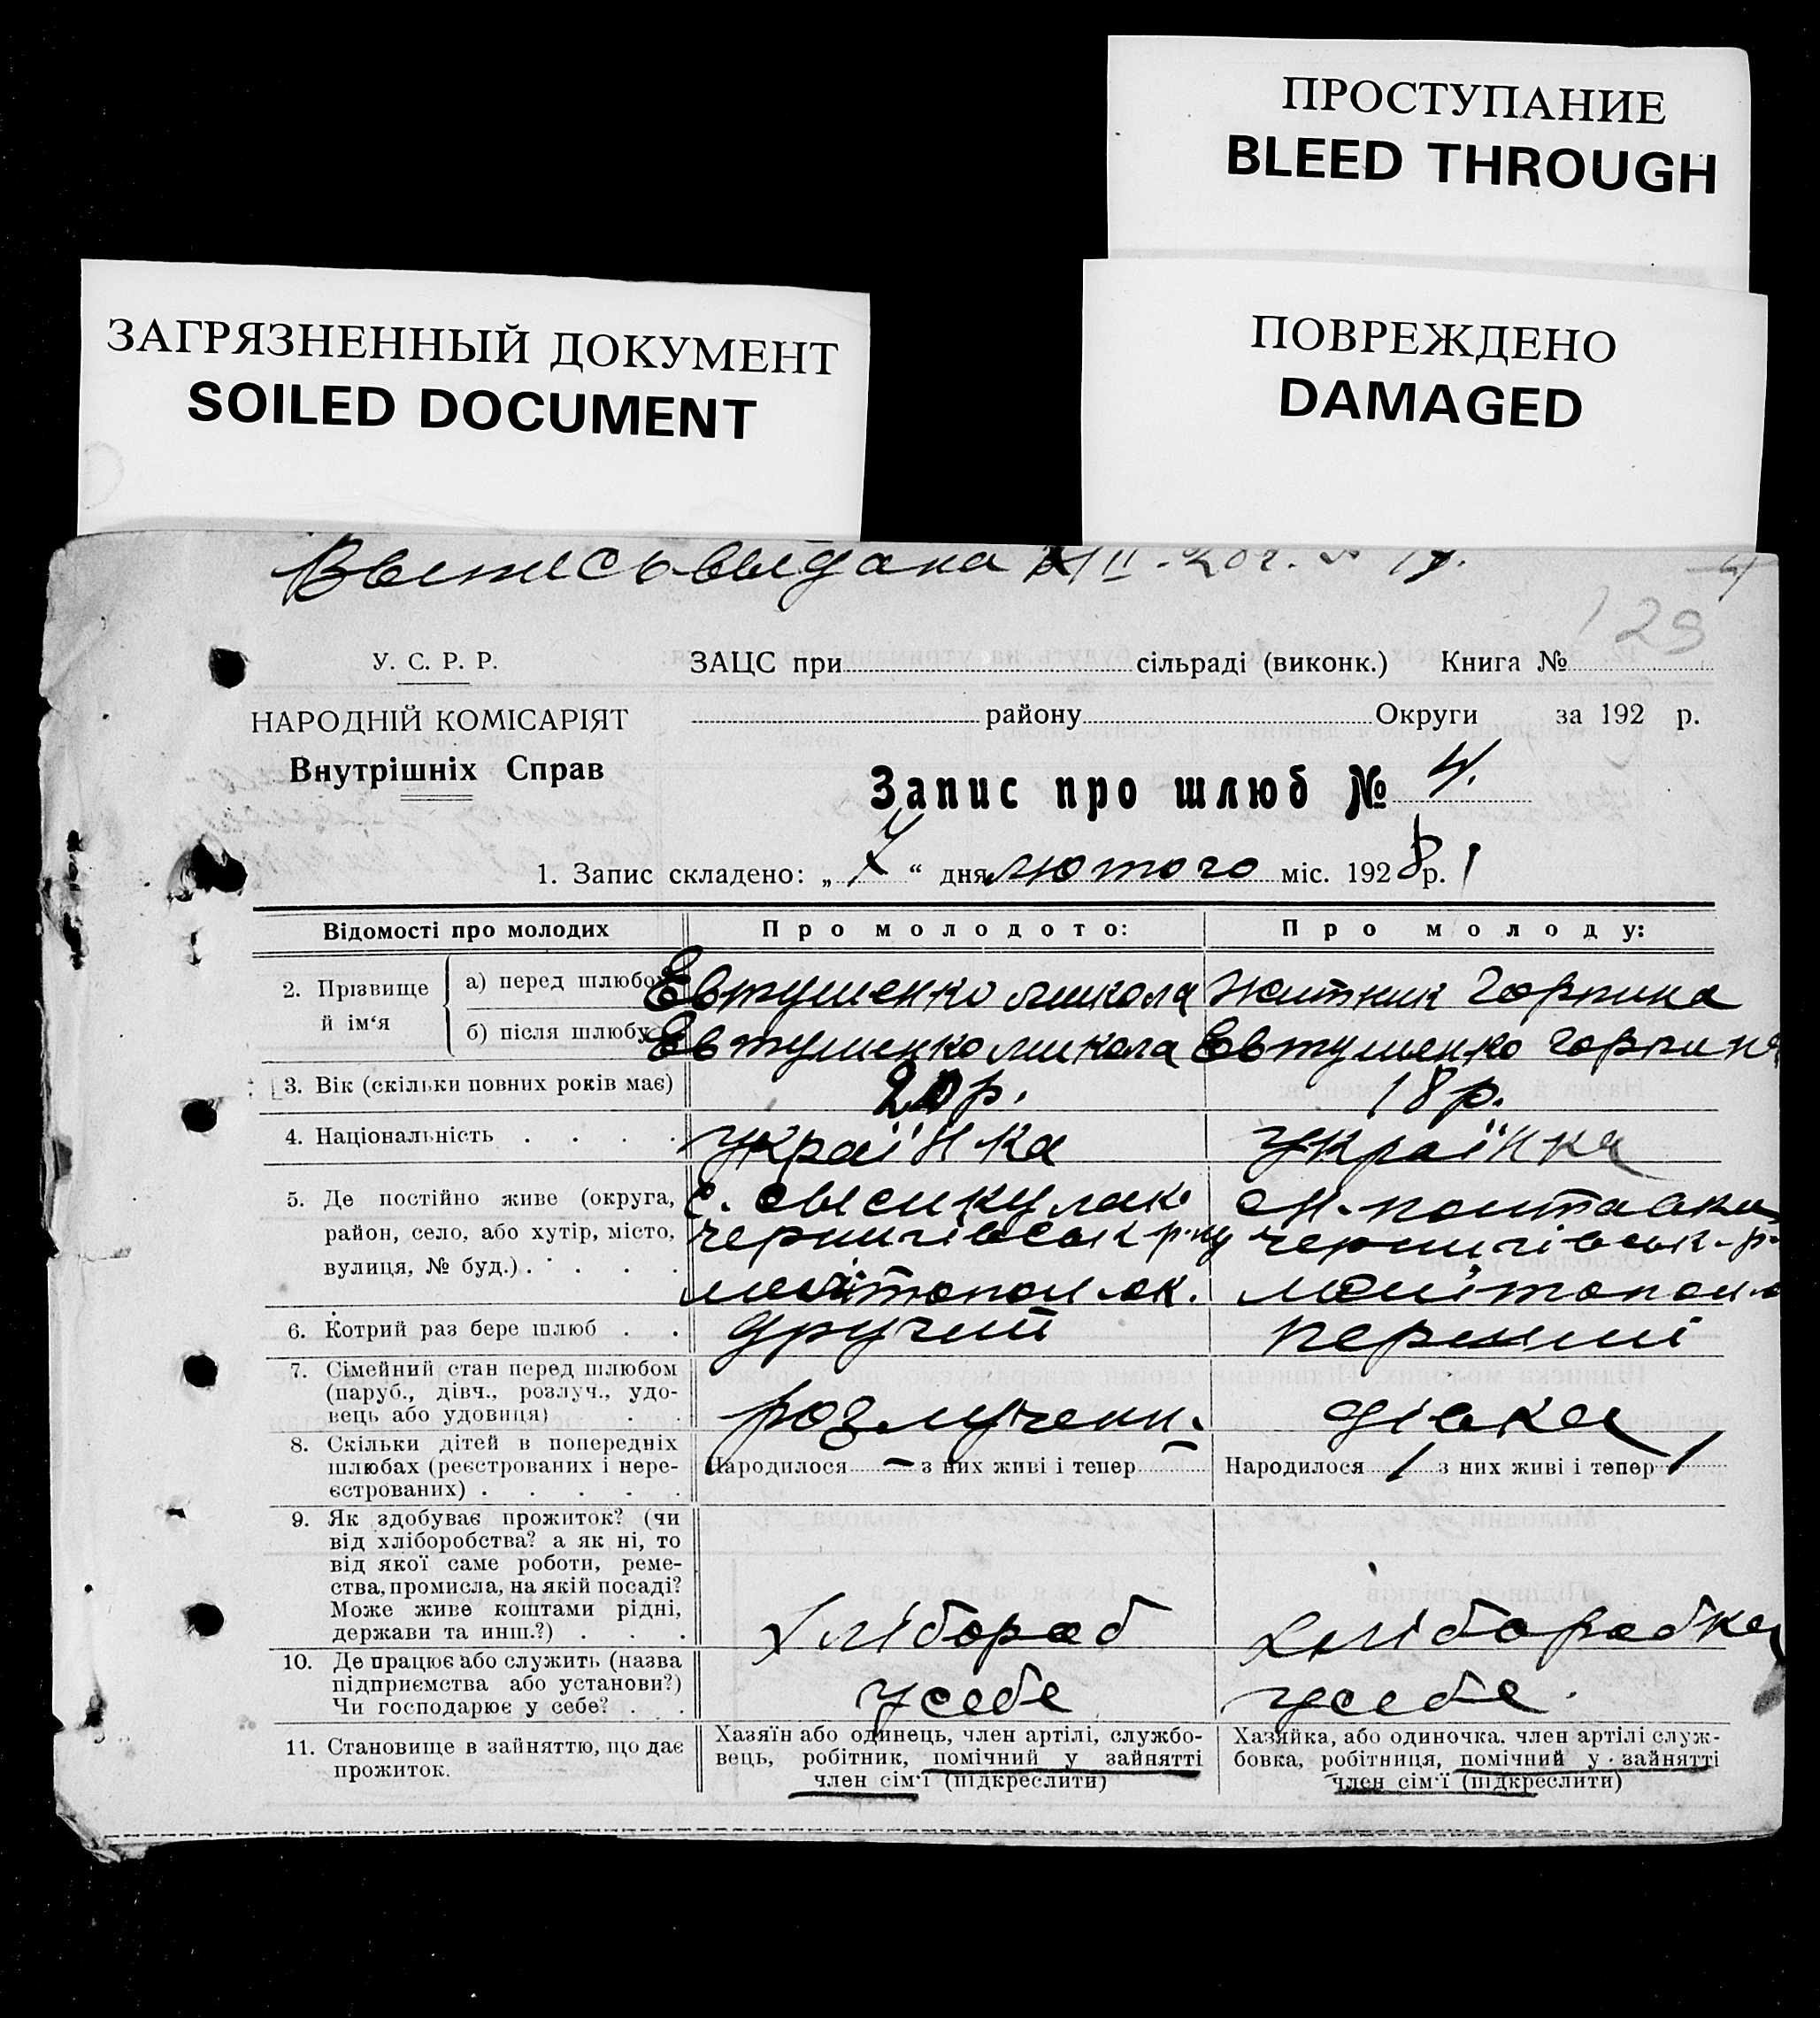 ПРОСТУПАНИЕ
BLEED THROUGH
ЗАГРЯЗНЕННЫЙ ДОКУМЕНТ
SOILED DOCUMENT
ПОВРЕЖДЕНО
DAMAGED
Выпись выдана
129
У. С. Р. Р.
ЗАЦС при сільраді (виконк.) Книга №
НАРОДНІЙ КОМІСАРІЯТ
району Округи за 192 р.
Внутрішніх Справ
Запис про шлюб № 4.
1. Запис складено: „ “ дня лютого міс. 1928 р.
Відомості про молодих
Про молодого:
Про молоду:
2. Прізвище й ім‘я
а) перед шлюбом
Євтушенко Микола
Житник Горпина
б) після шлюбу
Євтушенко Микола
Євтушенко Горпина
3. Вік (скільки повних років має)
20 р.
18 р.
4. Національність . . . .
українка
українка
5. Де постійно живе (округа,
район, село, або хутір, місто,
вулиця, № буд.) . . . .
с.
чернигівськ р-ну
ок.
чернигівськ. р-
6. Котрий раз бере шлюб . .
другий
перший
7. Сімейний стан перед шлюбом
(паруб., дівч., розлуч., удо-
вець або удовиця) . .
розлучени.
дівка
8. Скільки дітей в попередніх
шлюбах (реєстрованих і нере-
єстрованих) . . . . .
Народилося — з них живі і тепер —
Народилося 1 з них живі і тепер 1
9. Як здобуває прожиток? (чи
від хліборобства? а як ні, то
від якої саме роботи, реме-
ства, промисла, на якій посаді?
Може живе коштами рідні,
держави та инш.?) . . .
хлібораб
хліборабка
10. Де працює або служить (назва
підприємства або установи?)
Чи господарює у себе? . .
у себе
у себе.
11. Становище в зайняттю, що дає
прожиток.
Хазяїн або одинець, член артілі, службо-
вець, робітник, помічний у зайнятті
член сім‘ї (підкреслити)
Хазяйка, або одиночка, член артілі служ-
бовка, робітниця, помічний у зайнятті
член сім‘ї (підкреслити)